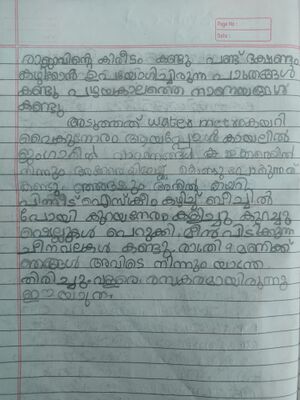 Page No :
Date :
രാജാവിന്റെ കിരീടം കണ്ടു പണ്ട് ഭക്ഷണം
കഴിക്കാൻ ഉപയോഗിച്ചിരുന്ന പാത്രങ്ങൾ
കണ്ടു പഴയകാലത്തെ നാണയങ്ങൾ
കണ്ടു
അടുത്തത് water metroകയറി
വൈകുന്നേരം ആയപ്പോൾ കായലിൽ
നിന്നും
കണ്ടു ഞങ്ങളും അതിൽ കയറി
പിന്നീട് ഐസ്ക്രീം കഴിച്ച് ബീച്ചിൽ
പോയി കുറയനേരം കളിച്ചു കുറച്ചു
ഷെല്ലുകൾ പെറുക്കി, മീൻ പിടിക്കുന്ന
ചീനവലകൾ കണ്ടു രാത്രി 9 മണിക്ക്
ഞങ്ങൾ അവിടെ നിന്നും യാത്ര
തിരിച്ചു വളരെ രസകരമായിരുന്നു
ഈ യാത്ര.